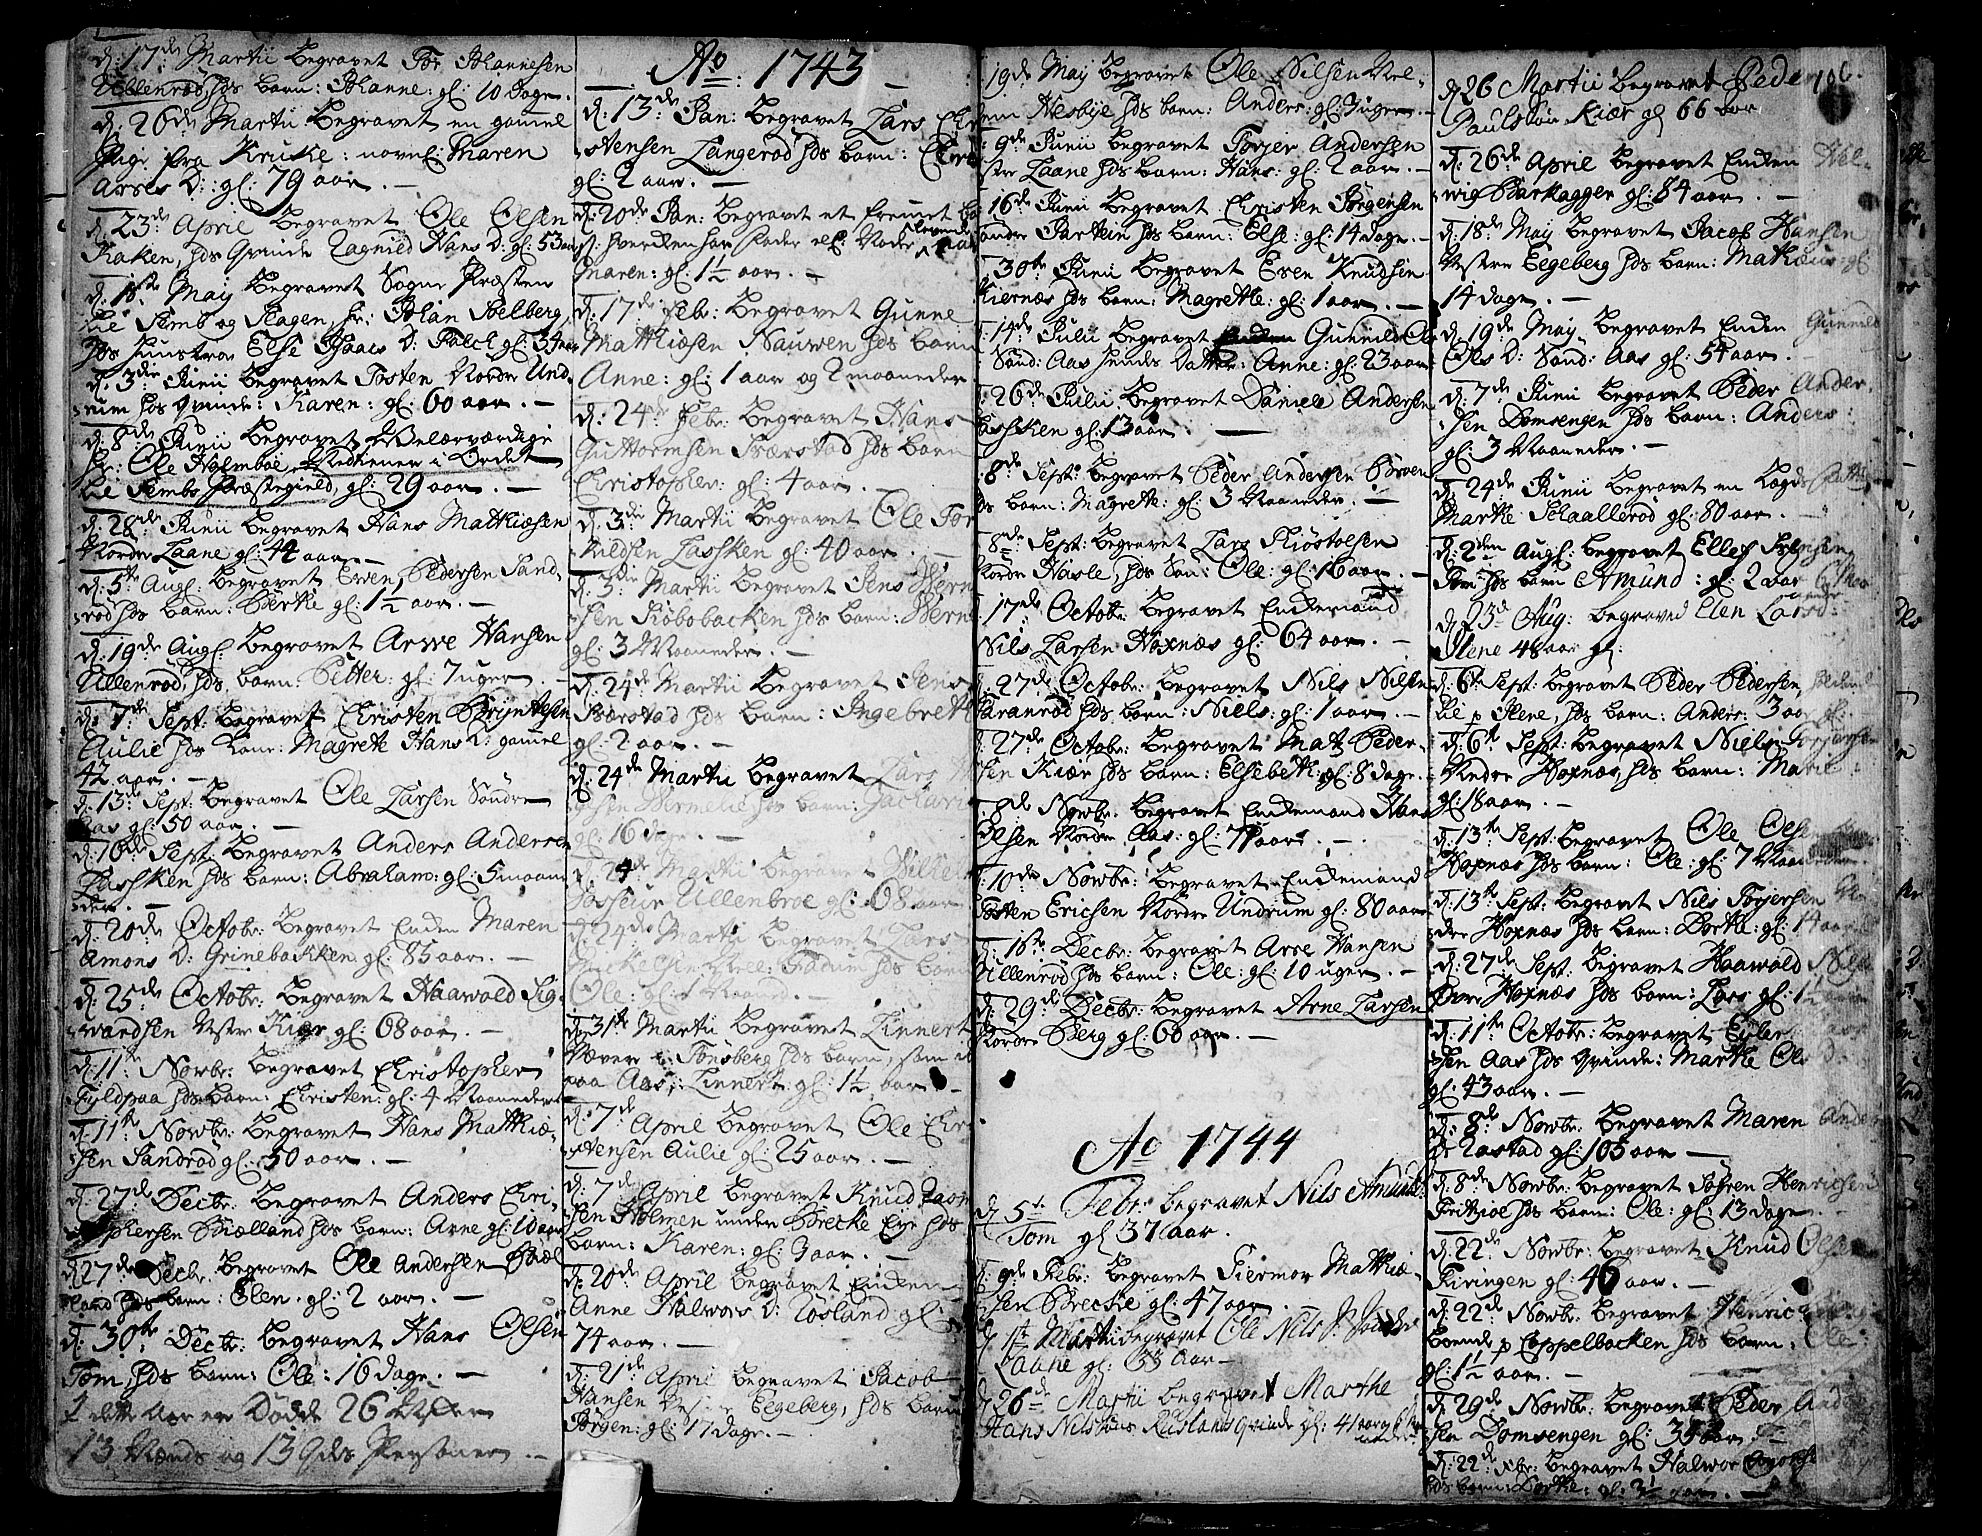 d: 17de Martii begravet Tor Johannesen
Ullenrød, hds barn: Johanne: gl: 10 dage.
d: 26de Martii begravet en gamel
Pige fra Kruke: navnl: Maren
Arves D: gl: 79 aar. —
d: 23de April begravet Ole Olsen
Kaken, hds Qvinde Ragnild Hans D: gl: 53 aar
d: 18de May begravet Sogne Præsten
til Semb og Slagen, Hr: Johan Solberg,
hds hustroe Else Isaacs D: Falch gl: 34 aar
d: 3die Junii begravet Tosten Nordre Und,
rum hds qvinde: Karen: gl: 60 aar. —
d: 8de Junii begravet Velærværdige
Hr: Ole Holmboe, Medtiener i Ordet
til Sembs Præstegield, gl: 29 aar. —
d: 28de Junii begravet Hans Mathiesen
Nordre Laane gl: 44 aar. —
d: 5te Augl: begravet Even Pedersen Sand,
rød hds barn: Berthe gl: 1½ aar. —
d: 19de Augl: begravet Arve Hansen
Ullenrød, hds barn: Petter: gl: 7 uger. —
d: 7de Sept: begravet Christen Bryntesen
Aulie hds kone: Magrethe Hans D: gamel
42 aar. —
d: 13de Sept: begravet Ole Larsen Søndre
Aas gl: 50 aar. —
d: 16de Sept: begravet Anders Andersen
Lashken hds barn: Abraham: gl: 5 maane,
der. —
d: 20de Octobr: begravet Enken Maren
Amons D: Grinebakken gl: 85 aar. —
d: 25de Octobr: begravet Haawald Sig,
wardsen Vestre Kiær gl: 68 aar. —
d: 11te Novbr: begravet Christopher
Fyldpaa hds barn: Christen: gl: 4 Maaneder
d: 11te Novbr: begravet Hans Mathie,
sen Sandrød gl: 50 aar. —
d: 27de Decbr: begravet Anders Chri,
stophersen Biælland hds barn: Arne gl: 10 aar
d: 27de Decbr: begravet Ole Andersen Biæl
land hds barn: Elen: gl: 2 aar. —
d: 30te Decbr: begravet Hans Olsen
Tom, hds barn: Ole: 16 dage. —
I dette Aar er Døde 26
13 Mænds og 13 Qds Personer. —
Ao: 1743
d: 13de Jan: begravet Lars Chri
stensen Langerød hds barn:
gl: 2 aar. —
d: 20de Jan: begravet et fremet
hverken har Fader ell: Moder levende
Maren: gl: 1½ aar. —
d: 17de Febr: begravet Gunne
Mathiesen Nauwen hds barn
Anne: gl: 1 aar og 2 maaneder
d: 24de Febr: begravet Hans
Guttormsen Sværstad hds barn
Christopher: gl: 4 aar. —
d: 3die Martii begravet Ole Tor
kieldsen Lashken gl: 40 aar. —
d: 3die Martii begravet Jens
sen Robobacken hds barn:
gl: 3 Maaneder. —
d: 24de Martii begravet Jens
Sværstad hds barn: Ingebreth
gl: 2 aar. —
d: 24de Martii begravet Lars
hds barn: Zacharie
gl: 16 dage. —
d: 24de Martii begravet
Ullenbroe gl: 68 aar
d: 24de Martii begravet Lars
Fadum hds barn
Ole: gl: 1 Maaned. —
d: 31te Martii begravet Linnert
Væver i Tønsberg hds barn, som
paa Aas,: Linnert: gl: 1½ aar —
d: 7de April begravet Ole Chri
stensen Aulie gl: 25 aar. —
d: 7de April begravet Knud
sen Holmen under Brecke Eye hds
barn: Karen: gl: 3 aar. —
d: 20de April begravet Enken
Anne Halwors D: Røsland gl:
74 aar. —
d: 21de April begravet Jacob
Hansen Vestre Eegeberg, hds barn
Jørgen: gl: 17 dage. —
19de May begravet Ole Nilsen Mel,
lem Nesbye hds barn: Anders: gl: 3 uger. —
9de Junii begravet Torjer Andersen
Vestre Laane hds barn: Hans: gl: 2 aar. —
16de Junii begravet Christen Jørgensen
Søndre Jarstein hds barn: Else: gl: 14 dage. —
30te Junii begravet Even Knudsen
Kiernæs hds barn: Magrethe: gl: 1 aar. —
14de Julii begravet Gunnild
Sønd: Aas hends Datter: Anne: gl: 23 aar
26de Julii begravet Daniel Andersen
Lashken gl: 13 aar. —
8de Sept: begravet Peder Andersen Børven
hds barn: Magrethe: gl: 3 Maaneder. —
8de Sept: begravet Lars Skiøstolsen
Nordre Hasle, hds Søn: Ole: gl: 16 aar. —
17de Octobr: begravet Enkemand
Nils Larsen Hoxnæs gl: 64 aar. —
27de Octobr: begravet Nils Nilsen
Jaranrød hds barn: Niels: gl: 1 aar. —
27de Octobr: begravet Matz Peder,
sen Kiær hds barn: Elsebeth: gl: 8 dage. —
8de Novbr: begravet Enkemand Hans
Olsen Nordre Aas: gl: 77 aar. —
10de Novbr: begravet Enkemand
Tosten Ericsen Nordre Undrum gl: 80 aar
d: 16te Decbr: begravet Arve Hansen
Ullenrød hds barn: Ole: gl: 10 uger. —
d: 29de Decbr: begravet Arne Larsen
Nordre Berg gl: 60 aar. —
Ao 1744
d 5te Febr: begravet Nils Amunds:
Tom gl 37 aar.
d: 9de Febr: begravet Giermor Mathie,
sen Brecke gl: 47 aar.
d 1ste Martii begravet Ole Nils
Laane gl: 63 Aar —
d 26de Martii begravet Marthe
Hans Nilssøns Røislands qvinde gl: 41 aar
106.
d 26 Martii begravet Peder
Paulssøn Kiær gl 66 aar
d: 26de April begravet Enken Hel,
wig Barkaggen gl: 84 aar. —
d: 18de May begravet Jacob Hansen
Vestre Eegeberg hds barn: Mathias: gl:
14 dage. —
d: 19de May begravet Enken Gunnild
Ols D: Sønd: Aas gl: 54 aar. —
d: 7de Junii begravet Peder Ander,
sen Domsengen hds barn: Anders:
gl: 3 Maaneder. —
d: 24de Junii begravet en Lægds
Marthe Schaallerød gl: 80 aar. —
d: 2den Augl: begravet Ellef
Tom: hds barn Amund: gl: 2 aar
d 23de Aug: begraved Elen Lars D:
Ilene 48 aar gl:
d: 6te Sept: begravet Peder Pedersen,
til p Ilene, hds barn: Anders: 3 aar gl:
d: 6te Sept: begravet Niels Torjersen
Nedre Hoxnæs, hds barn: Marie
gl: 18 aar. —
d: 13te Sept: begravet Ole Olsen
Hoxnæs hds barn: Ole: gl: 7 Maaneder.
d: 13te Sept: begravet Nils Torjersen
dre Hoxnæs hds barn: Dorthe: gl: 14 aar
d: 27de Sept: begravet Haawald Nils
Øvre Hoxnæs hds barn: Lars gl: 1½
d: 11te Octobr: begravet
sen Aas hds qvinde: Marthe Ols D:
gl: 43 aar. —
d: 8de Novbr: begravet Maren Anders
D: Rastad gl: 103 aar —
d: 8de Novbr: begravet Søfren Henricsen
Fritzøe hds barn: Ole: gl: 13 dage. —
d: 22de Novbr: begravet Knud Olsen
Kiringen gl: 46 aar. —
d: 22de Novbr: begravet Henric
boende p Coppelbacken hds barn: Ole:
gl: 1½ aar. —
d: 29de Novbr: begravet Peder And
sen Domsengen gl: 35 aar. —
d: 22de Xbr: begravet Halwor
hds barn: Dorthe: gl: 3½ aar. —